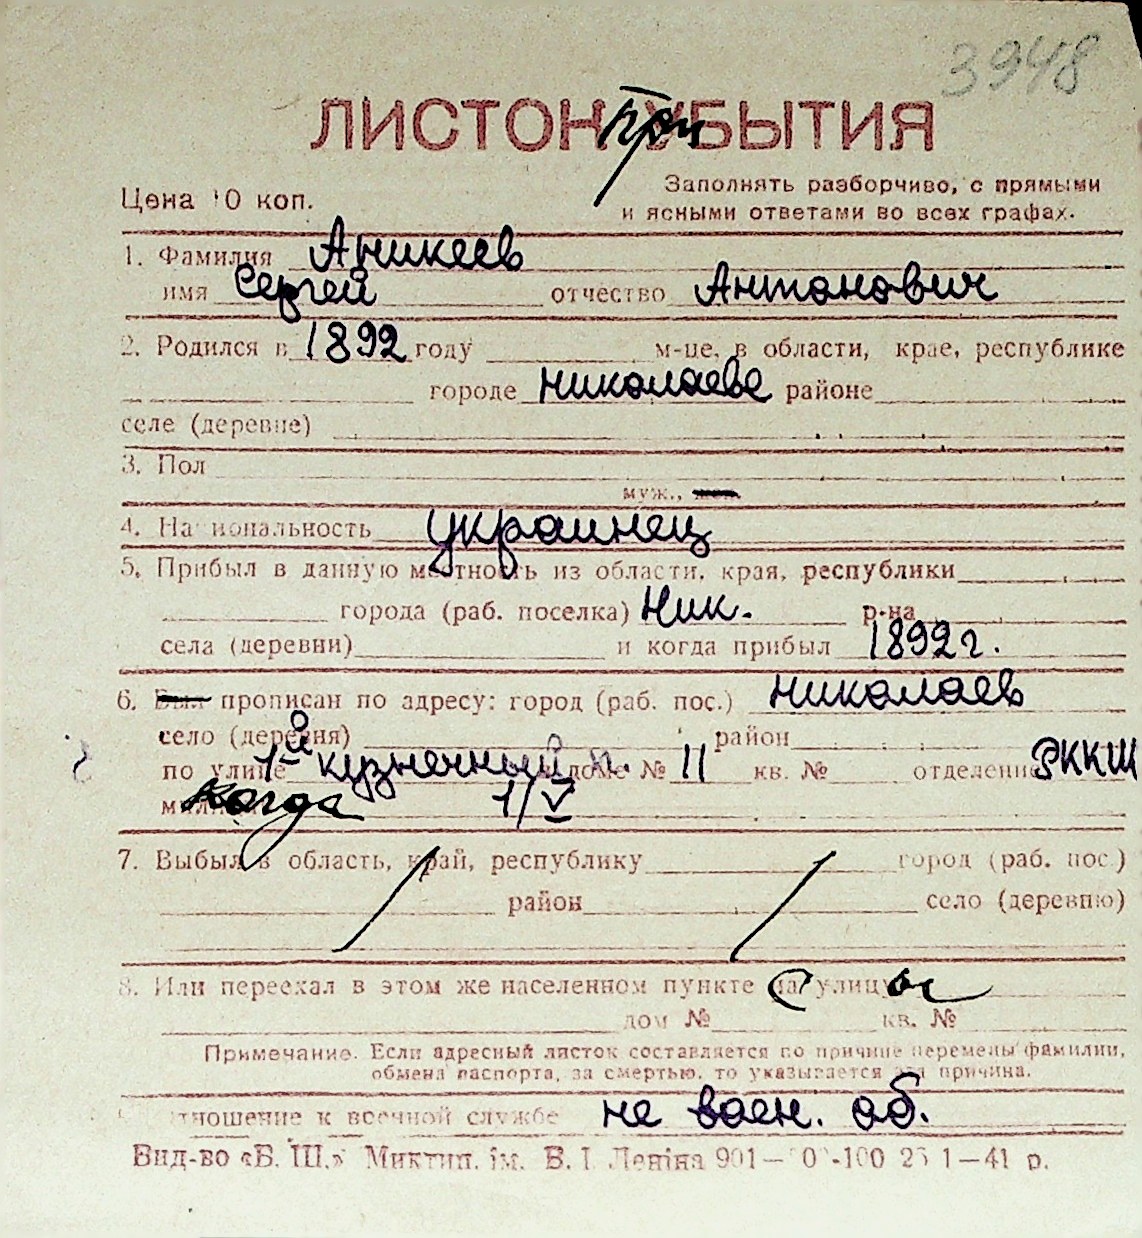 3948
ЛИСТОК УБЫТИЯ
при
Цена 10 коп.
Заполнять разборчиво, с прямыми
и ясными ответами во всех графах.
1. Фамилия Аникеев
имя Сергей отчество Антонович
2. Родился в 1892 году м-це, в области, крае, республике
городе Николаеве районе
селе (деревне)
3. Пол
муж., жен.
4. Национальность украинец
5. Прибыл в данную местность из области, края, республики
города (раб. поселка) Ник. р-на
села (деревни) и когда прибыл 1892 г.
6. Был прописан по адресу: город (раб. пос.) Николаев
село (деревня) район
по улице 1-й кузнечный п. доме № 11 кв. № отделение РККШ
милиции когда 1/V
7. Выбыл в область, край, республику город (раб. пос.)
район село (деревню)
8. Или переехал в этом же населенном пункте на улицу
дом № кв. №
Примечание. Если адресный листок составляется по причине перемены фамилии,
обмена паспорта, за смертью, то указывается эта причина.
9. Отношение к военной службе не воен. об.
Вид-во «Б. Ш.» Миктип. ім. В. І. Леніна 901— 0-100 25 1—41 р.